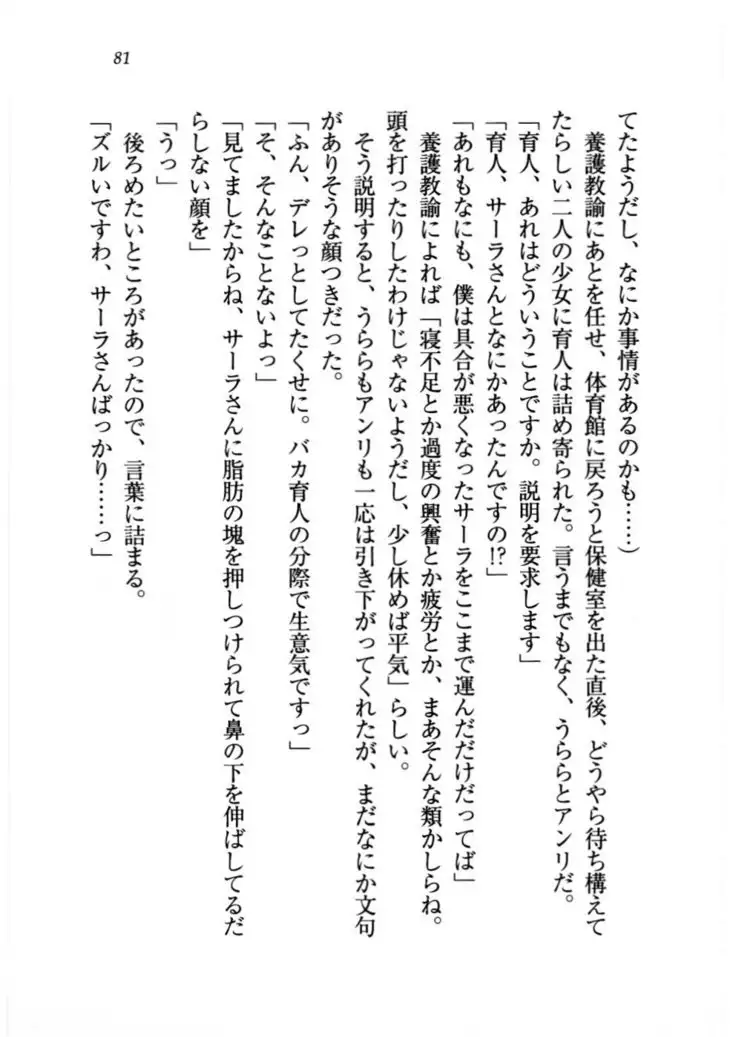 81
てたようだし、なにか事情があるのかも……）
　養護教諭にあとを任せ、体育館に戻ろうと保健室を出た直後、どうやら待ち構えて
たらしい二人の少女に育人は詰め寄られた。言うまでもなく、うららとアンリだ。
「育人、あれはどういうことですか。説明を要求します」
「育人、サーラさんとなにかあったんですの!?」
「あれもなにも、僕は具合が悪くなったサーラをここまで運んだだけだってば」
　養護教諭によれば「寝不足とか過度の興奮とか疲労とか、まあそんな類かしらね。
頭を打ったりしたわけじゃないようだし、少し休めば平気」らしい。
　そう説明すると、うららもアンリも一応は引き下がってくれたが、まだなにか文句
がありそうな顔つきだった。
「ふん、デレっとしてたくせに。バカ育人の分際で生意気ですっ」
「そ、そんなことないよっ」
「見てましたからね、サーラさんに脂肪の塊を押しつけられて鼻の下を伸ばしてるだ
らしない顔を」
「うっ」
　後ろめたいところがあったので、言葉に詰まる。
「ズルいですわ、サーラさんばっかり……っ」